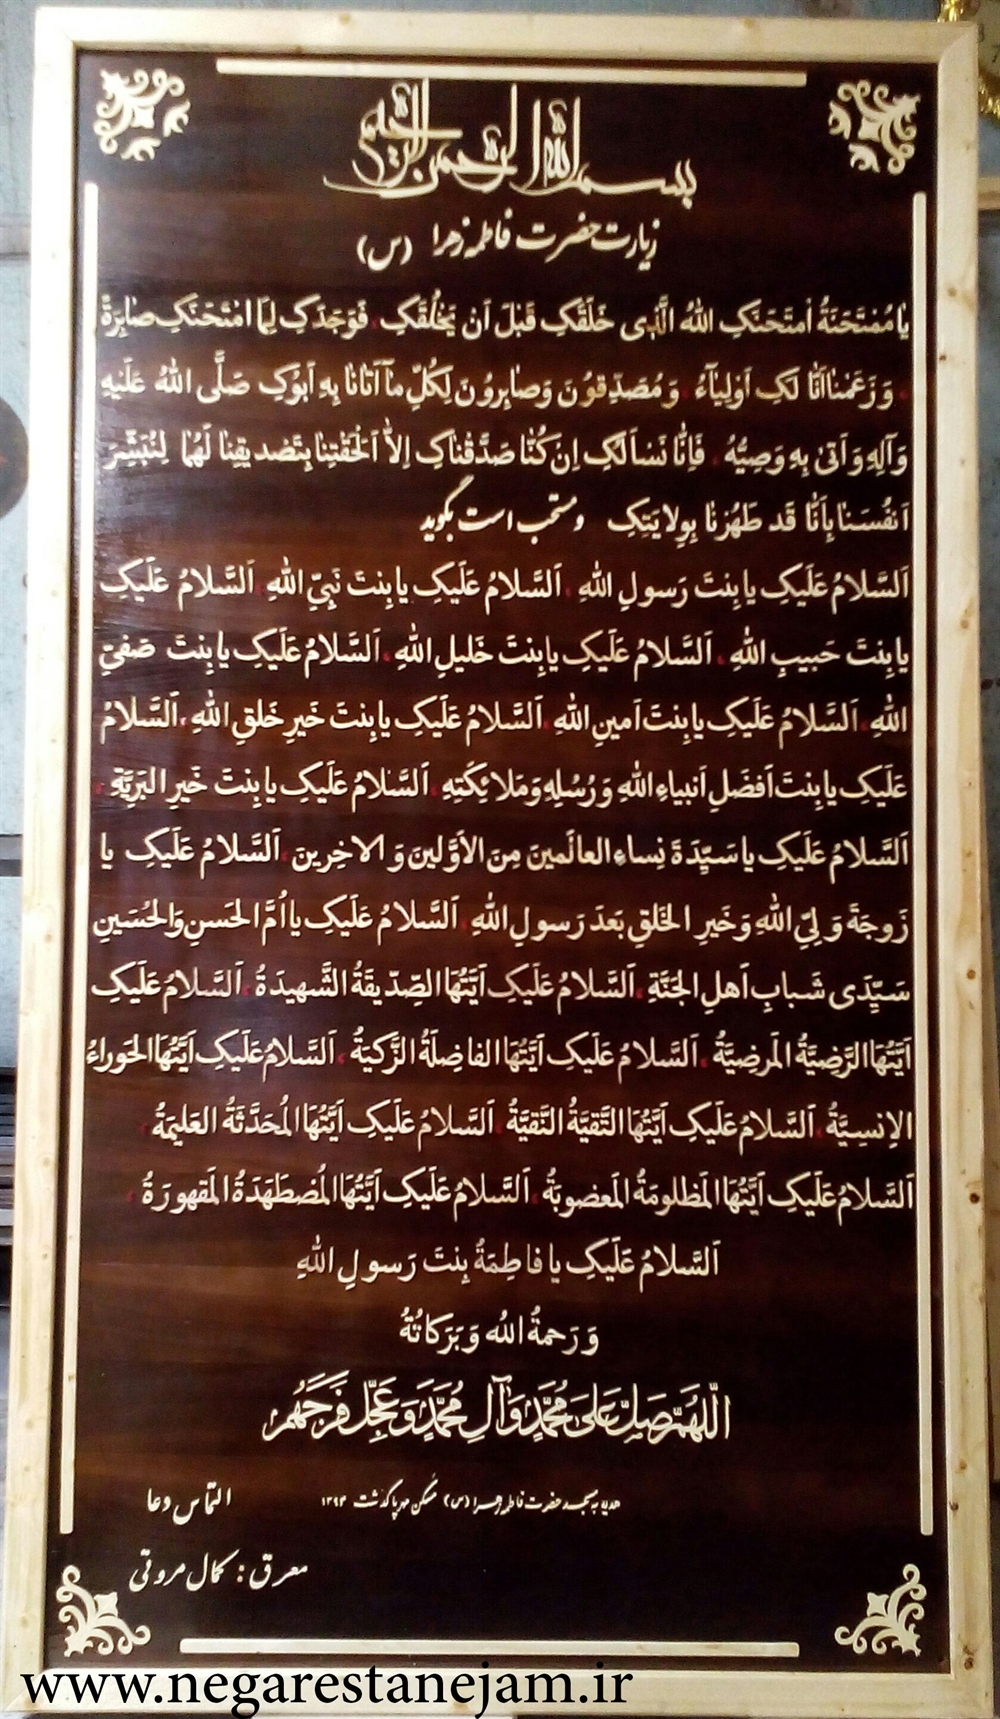 بسم الله الرحمن الرحیم
زیارت حضرت فاطمه زهرا (س)
یا مُمْتَحَنَةُ امتَحَنَکِ اللهُ الَّذی خَلَقَکِ قَبْلَ اَنْ یَخْلُقَکِ، فَوَجَدَکِ لِمَا امْتَحَنَکِ صابِرَةً
، وَ زَعَمْنا اَنّا لَکِ اَوْلِیآءُ، وَ مُصَدِّقوُنَ وَ صابِروُنَ لِکُلِّ ما اَتانا بِهِ اَبوُکِ صَلَّی اللهُ عَلَیْهِ
وَ آلِهِ وَ اَتیٰ بِهِ وَصِیُّهُ، فَاِنّا نَسأَلُکِ اِن کُنّا صَدَّقناکِ اِلاّ اَلْحَقْتِنا بِتَصْدیقِنا لَهُما لِنُبَشِّرَ
اَنفُسَنا بِاَنّا قَد طَهُرْنا بِوِلایَتِکِ و مستحب است بگوید
اَلسَّلامُ عَلَیکِ یا بِنتَ رَسولِ اللهِ، اَلسَّلامُ عَلَیکِ یا بِنتَ نَبِیِّ اللهِ، اَلسَّلامُ عَلَیکِ
یا بِنتَ حَبیبِ اللهِ، اَلسَّلامُ عَلَیکِ یا بِنتَ خَلیلِ اللهِ، اَلسَّلامُ عَلَیکِ یا بِنتَ صَفیِّ
اللهِ، اَلسَّلامُ عَلَیکِ یا بِنتَ اَمینِ اللهِ، اَلسَّلامُ عَلَیکِ یا بِنتَ خَیرِ خَلقِ اللهِ، اَلسَّلامُ
عَلَیکِ یا بِنتَ اَفضَلِ اَنبیاءِ اللهِ وَ رُسُلِهِ وَ مَلائِکَتِهِ، اَلسَّلامُ عَلَیکِ یا بِنتَ خَیرِ البَرِیَّةِ،
اَلسَّلامُ عَلَیکِ یا سَیِّدَةَ نِساءِ العالَمینَ مِنَ الاَوَّلینَ وَ الاخِرینَ، اَلسَّلامُ عَلَیکِ یا
زَوجَةَ وَلِیِّ اللهِ وَ خَیرِ الخَلقِ بَعدَ رَسولِ اللهِ، اَلسَّلامُ عَلَیکِ یا اُمَّ الحَسَنِ وَ الحُسَینِ
سَیِّدَی شَبابِ اَهلِ الجَنَّةِ، اَلسَّلامُ عَلَیکِ اَیَّتُهَا الصِّدّیقَةُ الشَّهیدَةُ، اَلسَّلامُ عَلَیکِ
اَیَّتُهَا الرَّضِیَّةُ المَرضِیَّةُ، اَلسَّلامُ عَلَیکِ اَیَّتُهَا الفاضِلَةُ الزَّکیَةُ، اَلسَّلامُ عَلَیکِ اَیَّتُهَا الحَوراءُ
الاِنسِیَّةُ، اَلسَّلامُ عَلَیکِ اَیَّتُهَا التَّقیَّةُ النَّقیَّةُ، اَلسَّلامُ عَلَیکِ اَیَّتُهَا المُحَدَّثَةُ العَلیمَةُ،
اَلسَّلامُ عَلَیکِ اَیَّتُهَا المَظلومَةُ المَغصوبَةُ، اَلسَّلامُ عَلَیکِ اَیَّتُهَا المُضطَهَدَةُ المَقهورَةُ،
اَلسَّلامُ عَلَیکِ یا فاطِمَةُ بِنتَ رَسولِ اللهِ
وَ رَحمةُ الله وَ بَرَکاتُهُ
اَللّهُمَّ صَلِّ عَلیَ مُحَمَّدٍ وَ آلِ مُحَمَّدٍ وَ عَجِّل فَرَجَهُم
هدیه به مسجد حضرت فاطمه زهرا (س) مسکن مهر پاکدشت ۱۳۹۳
التماس دعا
معرق : کمال مروتی
www.negarestanejam.ir